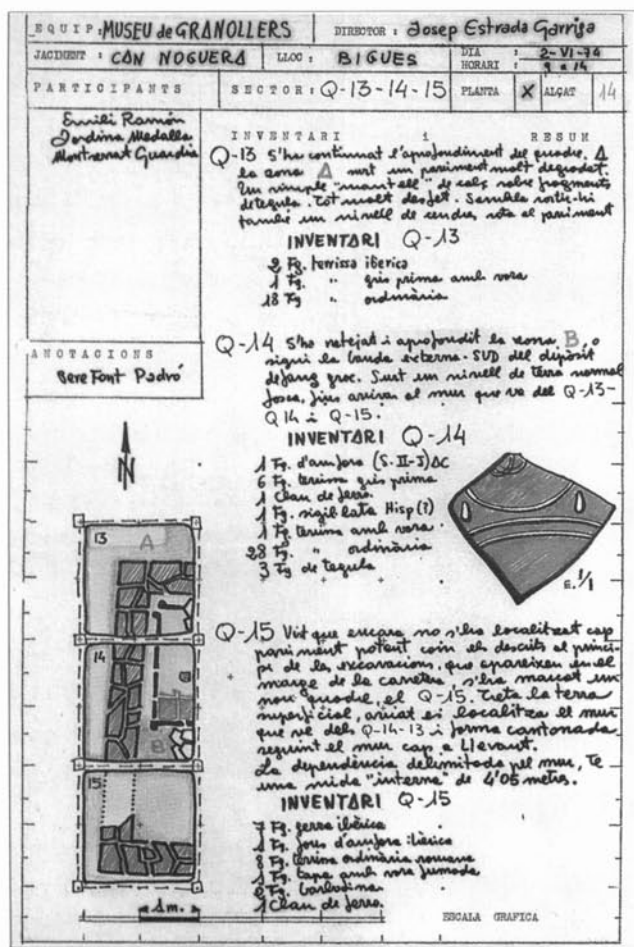 EQUIP: MUSEU de GRANOLLERS DIRECTOR: Josep Estrada Garriga
JACIMENT: CAN NOGUERA LLOC: BIGUES DIA: 2-VI-74
HORARI: 9 a 14
PARTICIPANTS SECTOR: Q-13-14-15 PLANTA X ALÇAT 14
Emili Ramón
Jordina Medalla
Montserrat Guardia
INVENTARI i RESUM
Q-13 S'ha continuat l'aprofundiment del quadre. A
la zona A surt un paviment molt degradat.
Un simple "mantell" de calç sobre fragments
de tegula. Tot molt desfet. Sembla sortir-hi
també un nivell de cendres sota el paviment
INVENTARI Q-13
2 Fg. terrissa iberica
1 Fg " gris prima amb vora
18 Fg " ordinària
ANOTACIONS
Pere Font Padró
Q-14 S'ha netejat i aprofundit la zona B, o
sigui la banda externa-SUD del dipòsit
de fang groc. Surt un nivell de terra normal
fosca, fins arrivar al mur que va del Q-13-
Q14 i Q-15.
INVENTARI Q-14
1 Fg. d'amfora (S. II-I) AC
6 Fg. terrissa gris prima
1 Clau de ferro
1 Fg. sigil·lata Hisp (?)
1 Fg. terrissa amb vora
28 Fg. " ordinària
3 Fg de tegula
E. 1/1
N
13 A
14 B
15
1 m.
Q-15 Vist que encara no s'ha localitzat cap
paviment potent com els descrits al princi-
pi de les excavacions, que apareixen en el
marge de la carretera, s'ha marcat un
nou quadre, el Q-15. Treta la terra
superficial, aviat es localitza el mur
que ve dels Q-14-13 i forma cantonada
seguint el mur cap a Llevant.
La dependència delimitada pel mur, Te
una mida "interna" de 4'05 metres.
INVENTARI Q-15
7 Fg. gerra ibèrica
1 Fg. d'amfora ibèrica
8 Fg. terrissa ordinària romana
1 Fg. tapa amb vora fumada
2 Fg.
1 Clau de ferro
ESCALA GRAFICA